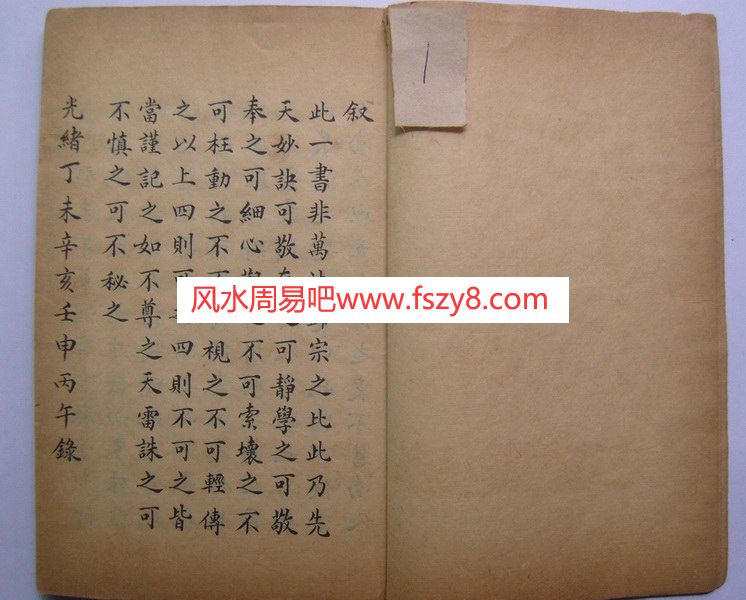 1
叙
此一書非萬宗之比此乃先
天妙訣可敬可靜學之可敬
奉之可細心不可索壞之不
可枉動之不視之不可輕傳
之以上四則四則不可之皆
當謹記之如不尊之天雷誅之可
不慎之可不秘之
光緒丁未辛亥壬申丙午錄
风水周易吧www.fszy8.com